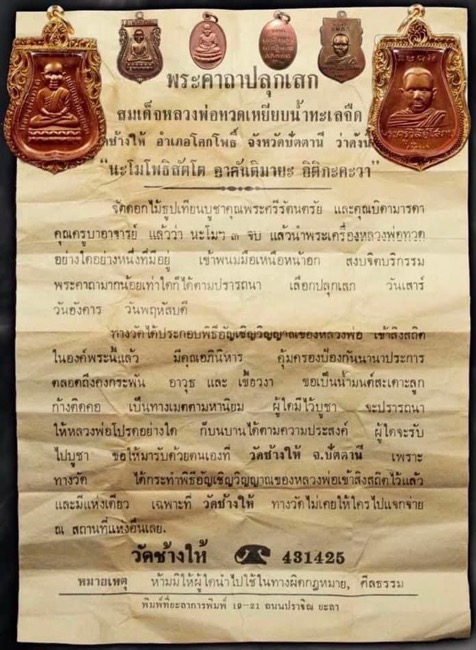 พระคาถาปลุกเสก
สมเด็จหลวงพ่อทวดเหยียบน้ำทะเลจืด
วัดช้างให้ อำเภอโคกโพธิ์ จังหวัดปัตตานี ว่าดังนี้
“นะโมโพธิสัตโต อาคันติมายะ อิติภะคะวา”
จัดดอกไม้ธูปเทียนบูชาคุณพระศรีรัตนตรัย และคุณบิดามารดา
คุณครูบาอาจารย์ แล้วว่า นะโมฯ ๓ จบ แล้วนำพระเครื่องหลวงพ่อทวด
อย่างใดอย่างหนึ่งที่มีอยู่ เข้าพนมมือเหนือหน้าอก สงบจิตบริกรรม
พระคาถามากน้อยเท่าใดก็ได้ตามปรารถนา เลือกปลุกเสก วันเสาร์
วันอังคาร วันพฤหัสบดี
ทางวัดได้ประกอบพิธีอัญเชิญวิญญาณของหลวงพ่อ เข้าสิงสถิต
ในองค์พระนี้แล้ว มีคุณอภินิหาร คุ้มครองป้องกันนานาประการ
ตลอดถึงคงกระพัน อาวุธ และ เขี้ยวงา ขอเป็นน้ำมนต์สะเดาะลูก
ก้างติดคอ เป็นทางเมตตามหานิยม ผู้ใดมีไว้บูชา จะปรารถนา
ให้หลวงพ่อโปรดอย่างใด ก็บนบานได้ตามความประสงค์ ผู้ใดจะรับ
ไปบูชา ขอให้มารับด้วยตนเองที่ วัดช้างให้ จ.ปัตตานี เพราะ
ทางวัด ได้กระทำพิธีอัญเชิญวิญญาณของหลวงพ่อเข้าสิงสถิตไว้แล้ว
และมีแห่งเดียว เฉพาะที่ วัดช้างให้ ทางวัดไม่เคยให้ใครไปแจกจ่าย
ณ สถานที่แห่งอื่นเลย.
วัดช้างให้ ☎ 431425
หมายเหตุ ห้ามมิให้ผู้ใดนำไปใช้ในทางผิดกฎหมาย, ศีลธรรม
พิมพ์ที่ยะลาการพิมพ์ 19-21 ถนนปราจิณ ยะลา